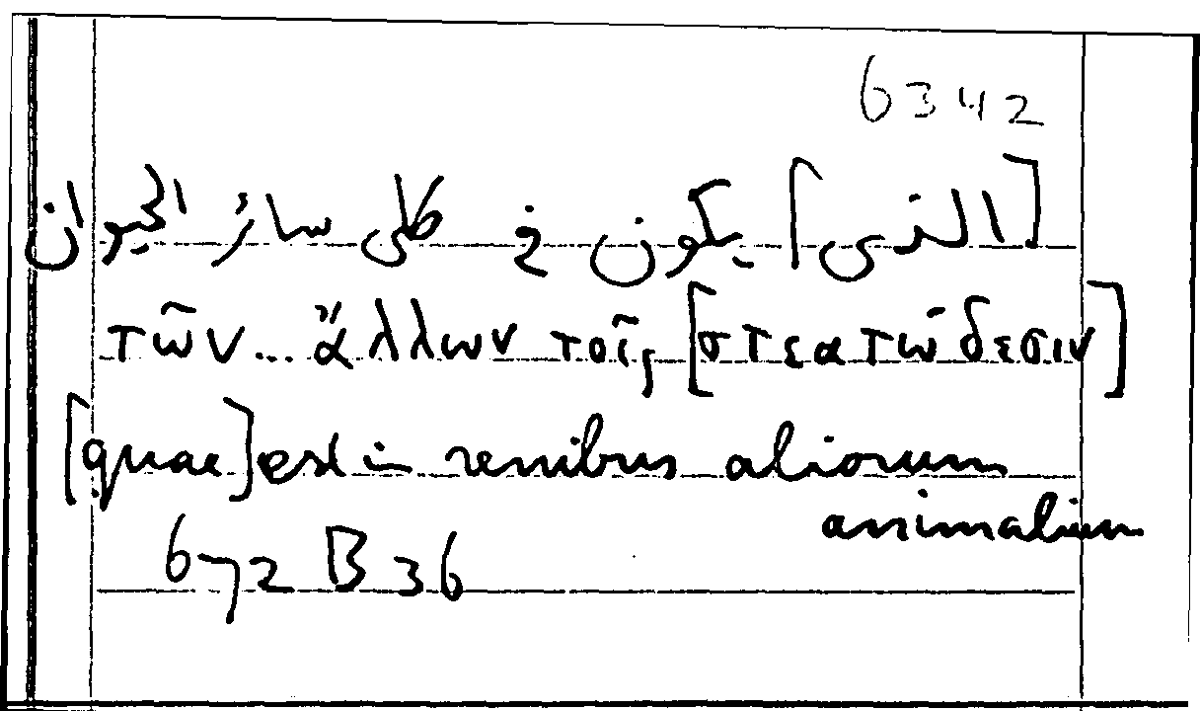 6342
[الذى] يكون فى كلى سائر الحيوان
τῶν... ἄλλων τοῖς [στεατώδεσιν]
[quae] est in renibus aliorum
animalium
672 B 36